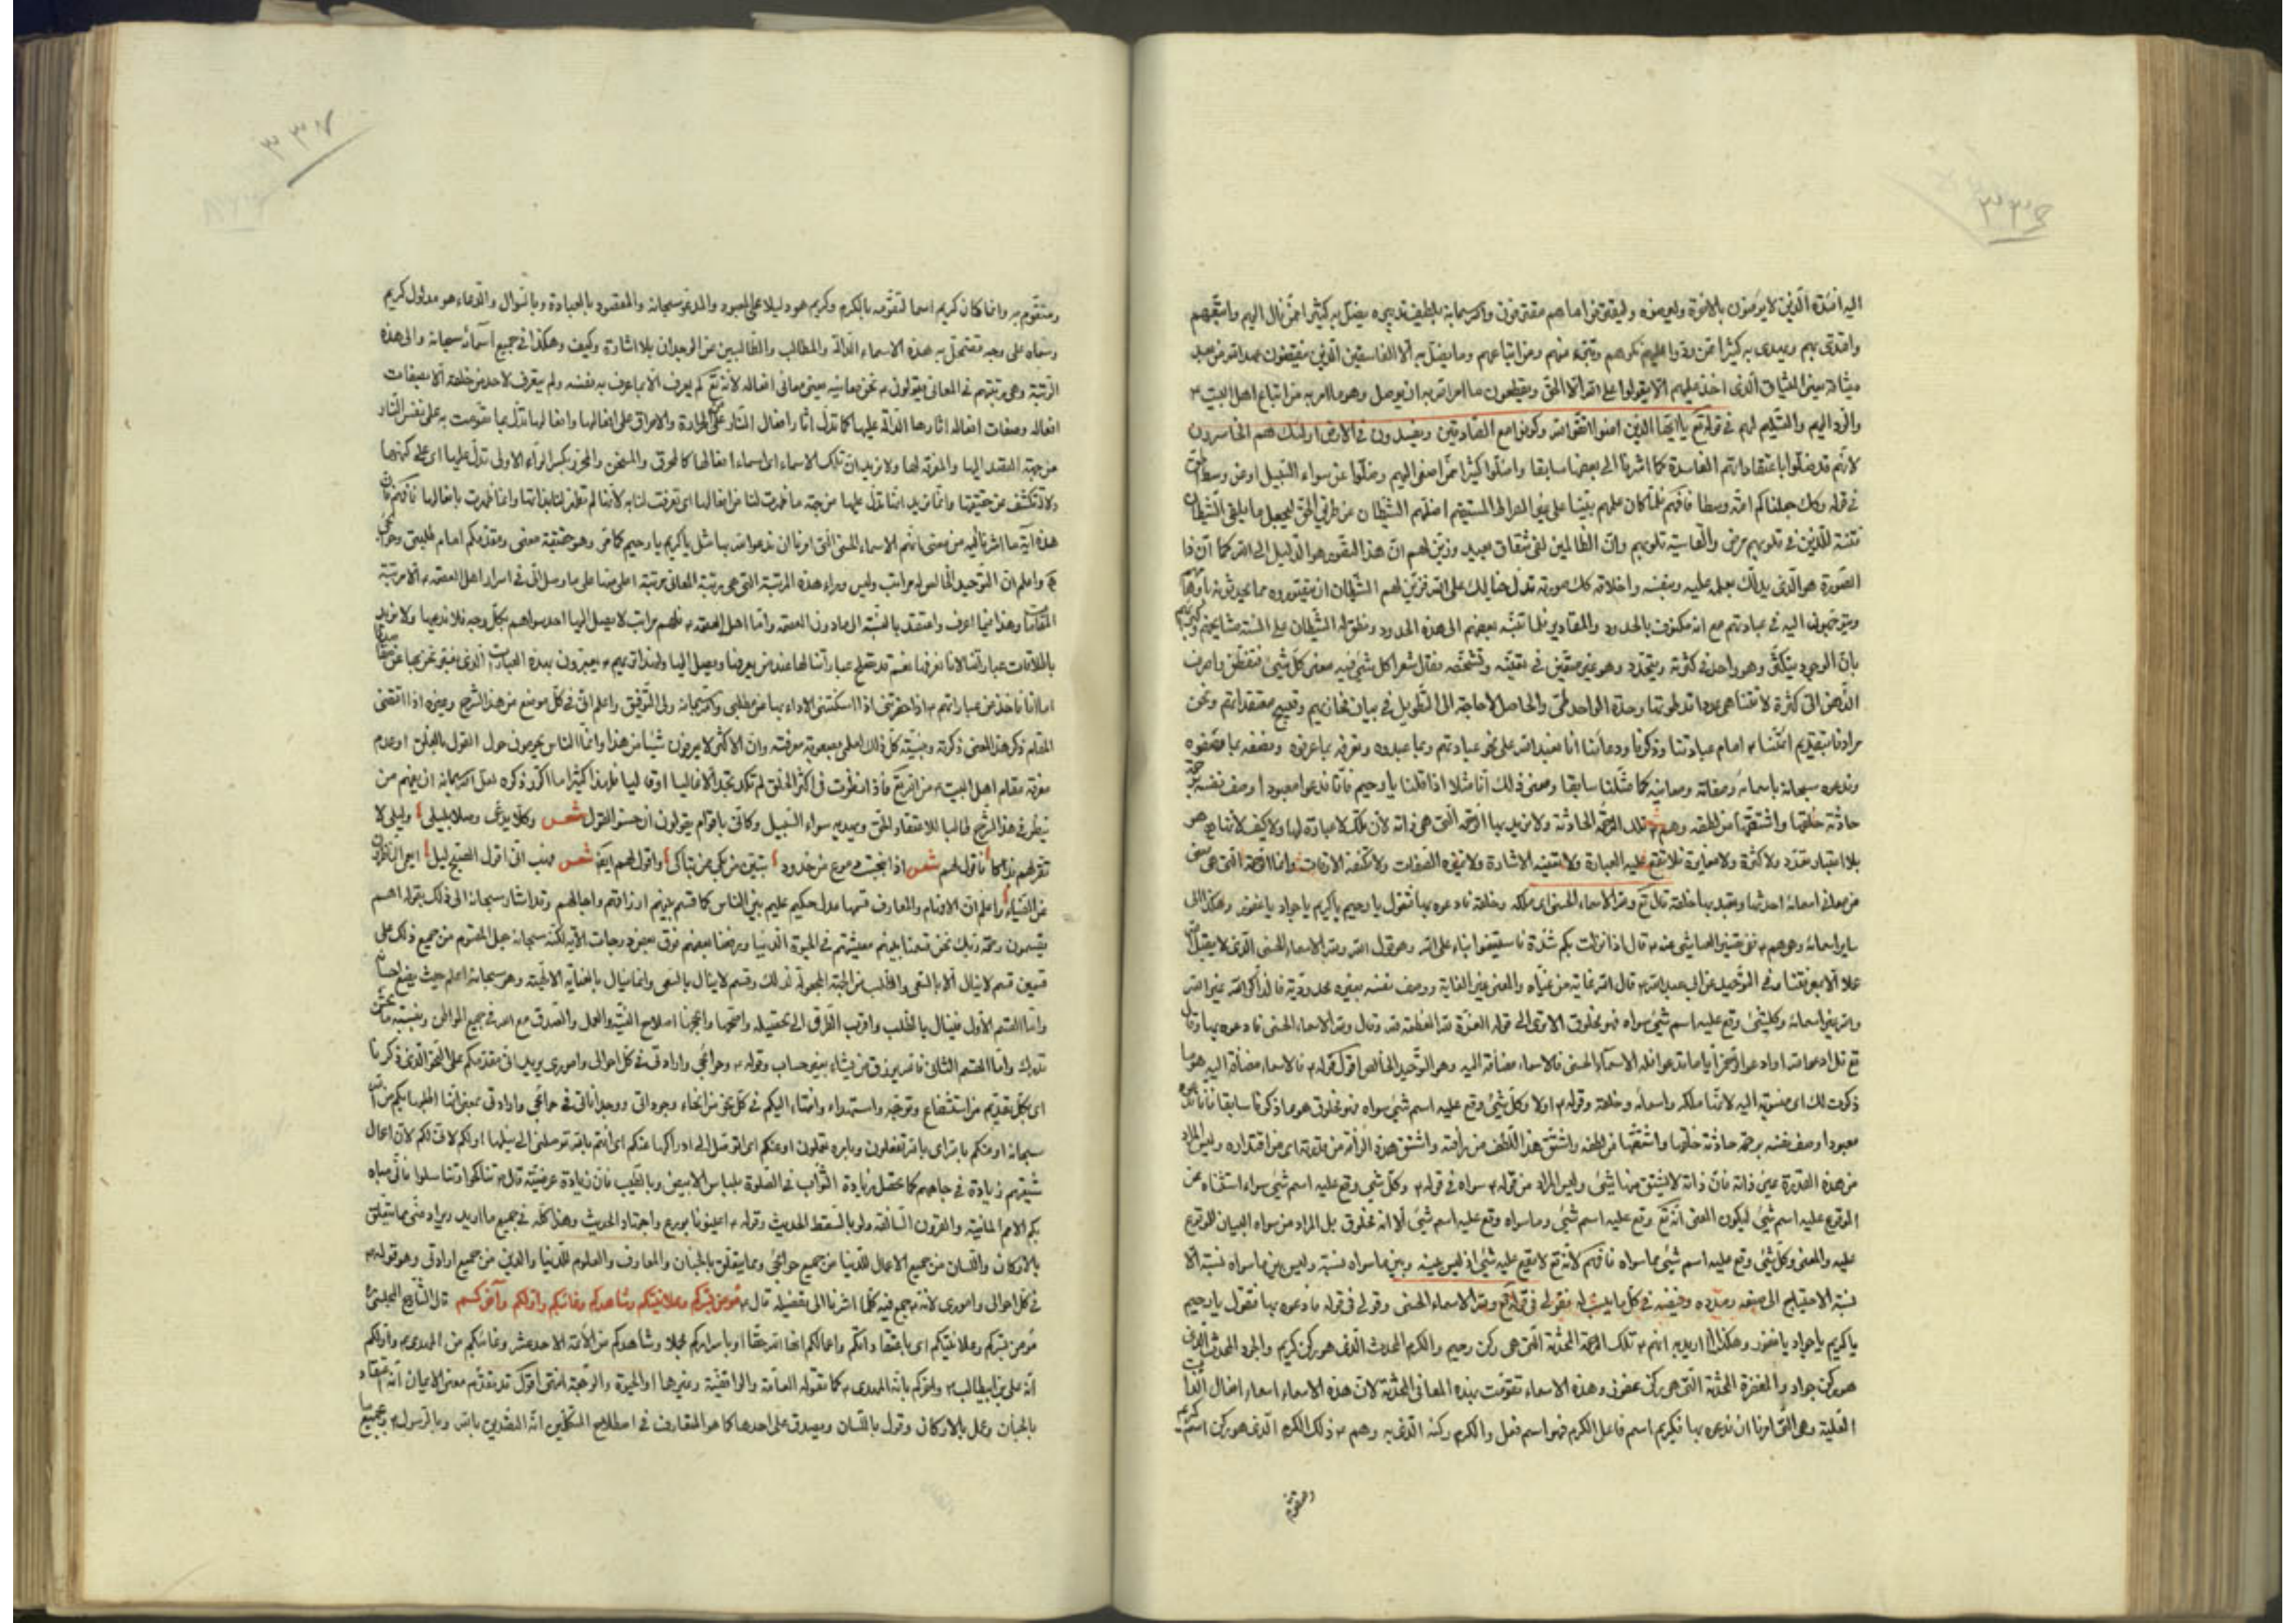 اليه افئدة الذين لا يؤمنون بالاخرة وليرضوه وليقترفوا ما هم مقترفون والله سبحانه بلطيف تدبيره يضل به كثيرا ممن مال اليهم واتبعهم
واقتدى بهم ويهدى به كثيرا ممن رد عليهم وانكرهم وتبرء منهم ومن اتباعهم وما يضل به الا الفاسقين الذين ينقضون عهد الله من بعد
ميثاقه يعنى الميثاق الذى اخذ عليهم الا يقولوا على الله الا الحق ويقطعون ما امر الله به ان يوصل وهو ما امر به من اتباع اهل البيت ع
والرد اليهم والتسليم لهم فى قوله تع يا ايها الذين امنوا اتقوا الله وكونوا مع الصادقين ويفسدون فى الارض اولئك هم الخاسرون
لانهم قد ضلوا باعتقاداتهم الفاسدة كما اشرنا الى بعضها سابقا واضلوا كثيرا ممن اصغى اليهم وضلوا عن سواء السبيل اى عن وسط الطريق
فى قوله وكذلك جعلناكم امة وسطا فافهم فلما كان علمهم مبنيا على غير الصراط المستقيم اضلهم الشيطان عن طريق الحق ليجعل ما يلقى الشيطان
فتنة للذين فى قلوبهم مرض والقاسية قلوبهم وان الظالمين لفى شقاق بعيد وزين لهم ان هذا التصور هو الدليل الى الله كما ان
الصورة هو الذى يدلك بعلمه عليه وبنفسه واخلاقه كذلك صورته تدل خيالك على الله فزين لهم الشيطان ان يتصوروه مما يحدثونه باوهامهم
ويتوجهون اليه فى عبادتهم مع انه مكتوف بالحدود والمقادير فلما تنبه بعضهم الى هذه الحدود ونطق له الشيطان على السنة مشايخهم وكبرائهم
بان الوجود يتكثر وهو واحد فى كثرته ويتحدد وهو غير متعين فى تعينه وتشخصه فقال شعرا كل شئ فيه معنى كل شئ فتفطن واصرف
الذهن الى كثرة لا تتناهى عددا قد طوتها وحدة الواحد طى والحاصل لا حاجة الى التطويل فى بيان قبائحهم وتقبيح معتقداتهم ونحن
مرادنا بتقديم ائمتنا ع امام عبادتنا وذكرنا ودعائنا انا نعبد الله على نحو عبادتهم وبما عبدوه ونعرفه بما عرفوه ونصفه بما وصفوه
وندعوه سبحانه باسمائه وصفاته ومعانيه كما مثلنا سابقا ومعنى ذلك انا مثلا اذا قلنا يا رحيم فانا ندعوا معبودا وصف نفسه برحمة
حادثة خلقها واشتقها من لطفه وهم ع تلك الرحمة الحادثة ولا نريد بها الرحمة التى هى ذاته لان تلك لا عبارة لها ولا كيف لانها هو
بلا اعتبار تعدد ولا كثرة ولا مغايرة فلا تقع عليه العبارة ولا تعينه الاشارة ولا تميزه الصفات ولا تكتنفه الاوقات وانما الرحمة التى هى
من معانى اسمائه احدثها وتعبد بها خلقه قال تع ولله الاسماء الحسنى اى ملكه وخلقه فادعوه بها فتقول يا رحيم يا كريم يا جواد يا غفور وهكذا الى
ساير اسمائه وهى هم ع ففى تفسير العياشى عنه ع قال اذا نزلت بكم شدة فاستعينوا بنا على الله وهو قول الله ولله الاسماء الحسنى الذى لا يقبل من احد
عملا الا بمعرفتنا وفى التوحيد عن ابى عبد الله ع قال الله غاية من غياه والمعنى غير الغاية ووصف نفسه بغير محدودية فالذاكر الله غير الله
والله غير اسمائه وكل شئ وقع عليه اسم شئ سواه فهو مخلوق الا ترى الى قوله العزة لله العظمة لله وقال ولله الاسماء الحسنى فادعوه بها وقال
تع قل ادعوا الله او ادعوا الرحمن ايا ما تدعوا فله الاسماء الحسنى فالاسماء مضافة اليه وهو التوحيد الخالص اقول قوله ع فالاسماء مضافة اليه هو ما
ذكرت لك اى منسوبة اليه لانها ملكه واسمائه وخلقه وقوله ع اولا وكل شئ وقع عليه اسم شئ سواه فهو مخلوق هو ما ذكرنا سابقا فانا ندعوه
معبودا وصف نفسه برحمة حادثة خلقها واشتقها من لطفه واشتق هذا اللطف من رأفته واشتق هذه الرأفة من قدرته اى من اقتداره وليس المراد
من هذه القدرة عين ذاته فان ذاته لا يشتق منها شئ وليس المراد من قوله ع سواه فى قوله ع وكل شئ وقع عليه اسم شئ سواه استثناه عن
الموقوع عليه اسم شئ ليكون المعنى انه تع وقع عليه اسم شئ وما سواه وقع عليه اسم شئ الا انه مخلوق بل المراد من سواه البيان للوقوع
عليه والمعنى وكل شئ وقع عليه اسم شئ مما سواه فافهم لانه تع لا يقع عليه شئ اذ ليس بينه وبين ما سواه نسبة وليس بين ما سواه نسبة الا
نسبة الاحتياج الى صنعه ومدده وفيضه فى كل ما ينسب له فقولى فى قوله تع ولله الاسماء الحسنى وقولى فى قوله فادعوه بها نقول يا رحيم
يا كريم يا جواد يا غفور وهكذا اريد به انهم ع تلك الرحمة المحدثة التى هى ركن رحيم والكرم المحدث الذى هو ركن كريم والجود المحدث الذى
هو ركن جواد والمغفرة المحدثة التى هى ركن غفور وهذه الاسماء تقومت بهذه المعانى المحدثة لان هذه الاسماء اسماء افعال الذات
الفعلية وهى التى امرنا ان ندعوه بها فكريم اسم فاعل الكرم فهو اسم فعل والكرم ركنه الذى به وهم ع ذلك الكرم الذى هو ركن اسم كريم
ومتقوم
ومتقوم به وانما كان كريم اسما لتقومه بالكرم وكريم هو دليلا على المعبود والمدعو سبحانه والمقصود بالعبادة وبالسؤال والدعاء هو مدلول كريم
وسماه على وجه تضمحل به هذه الاسماء الدالة والمطالب والطالبين عن الوجدان بلا اشارة وكيف وهكذا فى جميع اسمائه سبحانه والى هذه
الرتبة وهى رتبتهم فى المعانى يقولون ع نحن معانيه يعنى معانى افعاله لانه تع لم يعرف الا بما عرف به نفسه ولم يتعرف لاحد من خلقه الا بصفات
افعاله وصفات افعاله اثارها الدالة عليها كما تدل اثار افعال النار على الحرارة والاحراق على افعالها وافعالها تدل بما تقومت به على نفس النار
من جهة القصد اليها والمعرفة لها ولا نريد ان تلك الاسماء اى اسماء افعالها كالمحرق والمسخن والمحرر بكسر الراء الاولى تدل عليها اى على كنهها
ولا تكشف عن حقيقتها وانما نريد انها تدل عليها من جهة ما ظهرت لنا من افعالها اى تعرفت لنا به لانها لم تظهر لنا بذاتها وانما ظهرت بافعالها فافهم فان
هذه آية ما اشرنا اليه من معنى انهم الاسماء الحسنى التى امرنا ان ندعو الله بها مثل يا كريم يا رحيم كما مر وهو حقيقة معنى ومقدمكم امام طلبتى وحوائجى
الخ واعلم ان التوحيد الخالص له مراتب وليس وراء هذه المرتبة التى هى رتبة المعانى مرتبة اعلى منها على ما وصل الى فى اسرار اهل العصمة ع الا مرتبة
المقامات وهذا فيما اعرف واعتقد بالنسبة الى ما دون العصمة واما اهل العصمة ع فلهم مراتب لا يصل اليها احد سواهم بكل وجه فلا ندعيها ولا نريد
اما انا ناخذ من عباراتهم ع اذا حضرتنى اذا اسكنتنى الاداء بها عن مطلبى والله سبحانه ولى التوفيق واعلم انى فى كل موضع من هذا الشرح وغيره اذا اقتضى
المقام ذكر هذا المعنى ذكرته وبينته كل ذلك لعلمى بصعوبة معرفته وان الاكثر لا يعرفون شيئا من هذا وانما الناس يحومون حول القول بالغلو او عدم
معرفة مقام اهل البيت ع من الله تع فاذا نظرت فى اكثر الخلق لم تكد تجد الا غاليا او قاليا فلهذا كثيرا ما اكرر ذكره لعل الله سبحانه ان يفهم من
ينظر فى هذا الشرح طالبا للاعتقاد الحق ويهديه سواء السبيل وكانى باقوام يقولون ان حسنوا القول شعر وكل يدعى وصلا بليلى وليلى لا
تقر لهم بذاكا فاقول لهم شعر اذا انبجست دموع من خدود تبين من بكى ممن تباكى واقول لهم ايضا شعر فهب انى اقول الصبح ليل ايعمى الناظرون
عن الضياء واعلم ان الافهام والمعارف قسمها عدل حكيم عليم بين الناس كما قسم بينهم ارزاقهم واجالهم وقد اشار سبحانه الى ذلك بقوله اهم
يقسمون رحمة ربك نحن قسمنا بينهم معيشتهم فى الحيوة الدنيا ورفعنا بعضهم فوق بعض درجات الاية لكنه سبحانه جعل المقسوم من جميع ذلك على
قسمين قسم لا ينال الا بالسعى والطلب من الجهة المجعولة لذلك وقسم لا ينال بالسعى وانما ينال بالعناية الالهية وهو سبحانه اعلم حيث يضع احسانه
واما القسم الأول فينال بالطلب واقرب الطرق الى تحصيله واصحها وانجحها اصلاح النية والعمل والصدق مع الله فى جميع المواطن
واما القسم الثانى فالله يرزق من يشاء بغير حساب وقوله ع وحوائجى وارادتى فى كل احوالى وامورى يريد انى مقدمكم على النحو الذى ذكرنا
اى بكل تقديم من استشفاع وتوجه واستهداء وانتماء اليكم فى كل نحو من انحاء وجوداتى ووجداناتى فى حوائجى وارادتى بمعنى انها اطلبها بكم من الله
سبحانه او منكم بالله اى بالله تفعلون وبامره تعملون او عنكم اى اتوصل الى ادراكها عنكم اى انتم بالله توصلونى الى نيلها او لكم لانى لكم لان اعمال
شيعتهم زيادة فى جاههم كما تحصل زيادة الثواب فى الصلوة بلباس الابيض وبالطيب فان زيادة عرضية قال ص تناكحوا تناسلوا فانى مباه
بكم الامم الماضية والقرون السالفة ولو بالسقط الحديث وقوله ع اعينونا بورع واجتهاد الحديث وهذا كله فى جميع ما اريد ويراد منى مما يتعلق
بالاركان واللسان من جميع الاعمال للدنيا من جميع حوائجى ومما يتعلق بالجنان والمعارف والعلوم للدنيا والدين من جميع ارادتى وهو قوله ع
فى كل احوالى وامورى لانه ع جمع فيه كلما اشرنا الى تفصيله قال ع مؤمن بسركم وعلانيتكم وشاهدكم وغائبكم واولكم وآخركم قال الشارح المجلسى ره
مؤمن بسركم وعلانيتكم اى باعتقاداتكم واعمالكم انها لله حقا او باسراركم مجملا وشاهدكم من الأئمة الاحد عشر وغائبكم من المهدى ع واولكم
انه على بن ابيطالب ع واخركم بانه المهدى ع كما تقوله العامة والواقفية وغيرها او الحيوة والرجعة انتهى اقول قد تقدم معنى الايمان انه اعتقاد
بالجنان وعمل بالاركان وقول باللسان ويصدق على احدها كما هو المتعارف فى اصطلاح المتكلمين انه التصديق بالله وبالرسول ص وبجميع ما